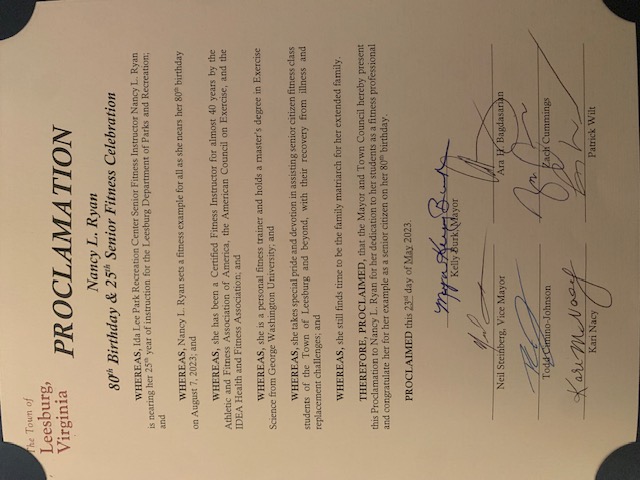 The Town of
Leesburg,
Virginia
PROCLAMATION
Nancy L. Ryan
80th Birthday & 25th Senior Fitness Celebration
WHEREAS, Ida Lee Park Recreation Center Senior Fitness Instructor Nancy L. Ryan
is nearing her 25th year of instruction for the Leesburg Department of Parks and Recreation;
and
WHEREAS, Nancy L. Ryan sets a fitness example for all as she nears her 80th birthday
on August 7, 2023; and
WHEREAS, she has been a Certified Fitness Instructor for almost 40 years by the
Athletic and Fitness Association of America, the American Council on Exercise, and the
IDEA Health and Fitness Association; and
WHEREAS, she is a personal fitness trainer and holds a master's degree in Exercise
Science from George Washington University; and
WHEREAS, she takes special pride and devotion in assisting senior citizen fitness class
students of the Town of Leesburg and beyond, with their recovery from illness and
replacement challenges; and
WHEREAS, she still finds time to be the family matriarch for her extended family.
THEREFORE, PROCLAIMED, that the Mayor and Town Council hereby present
this Proclamation to Nancy L. Ryan for her dedication to her students as a fitness professional
and congratulate her for her example as a senior citizen on her 80th birthday.
PROCLAIMED this 23rd day of May 2023.
Mayor Kelly Burk
Kelly Burk, Mayor
Neil Steinberg, Vice Mayor
Ara H. Bagdasarian
Todd Cimino-Johnson
Zach Cummings
Kari Nacy
Patrick Wilt